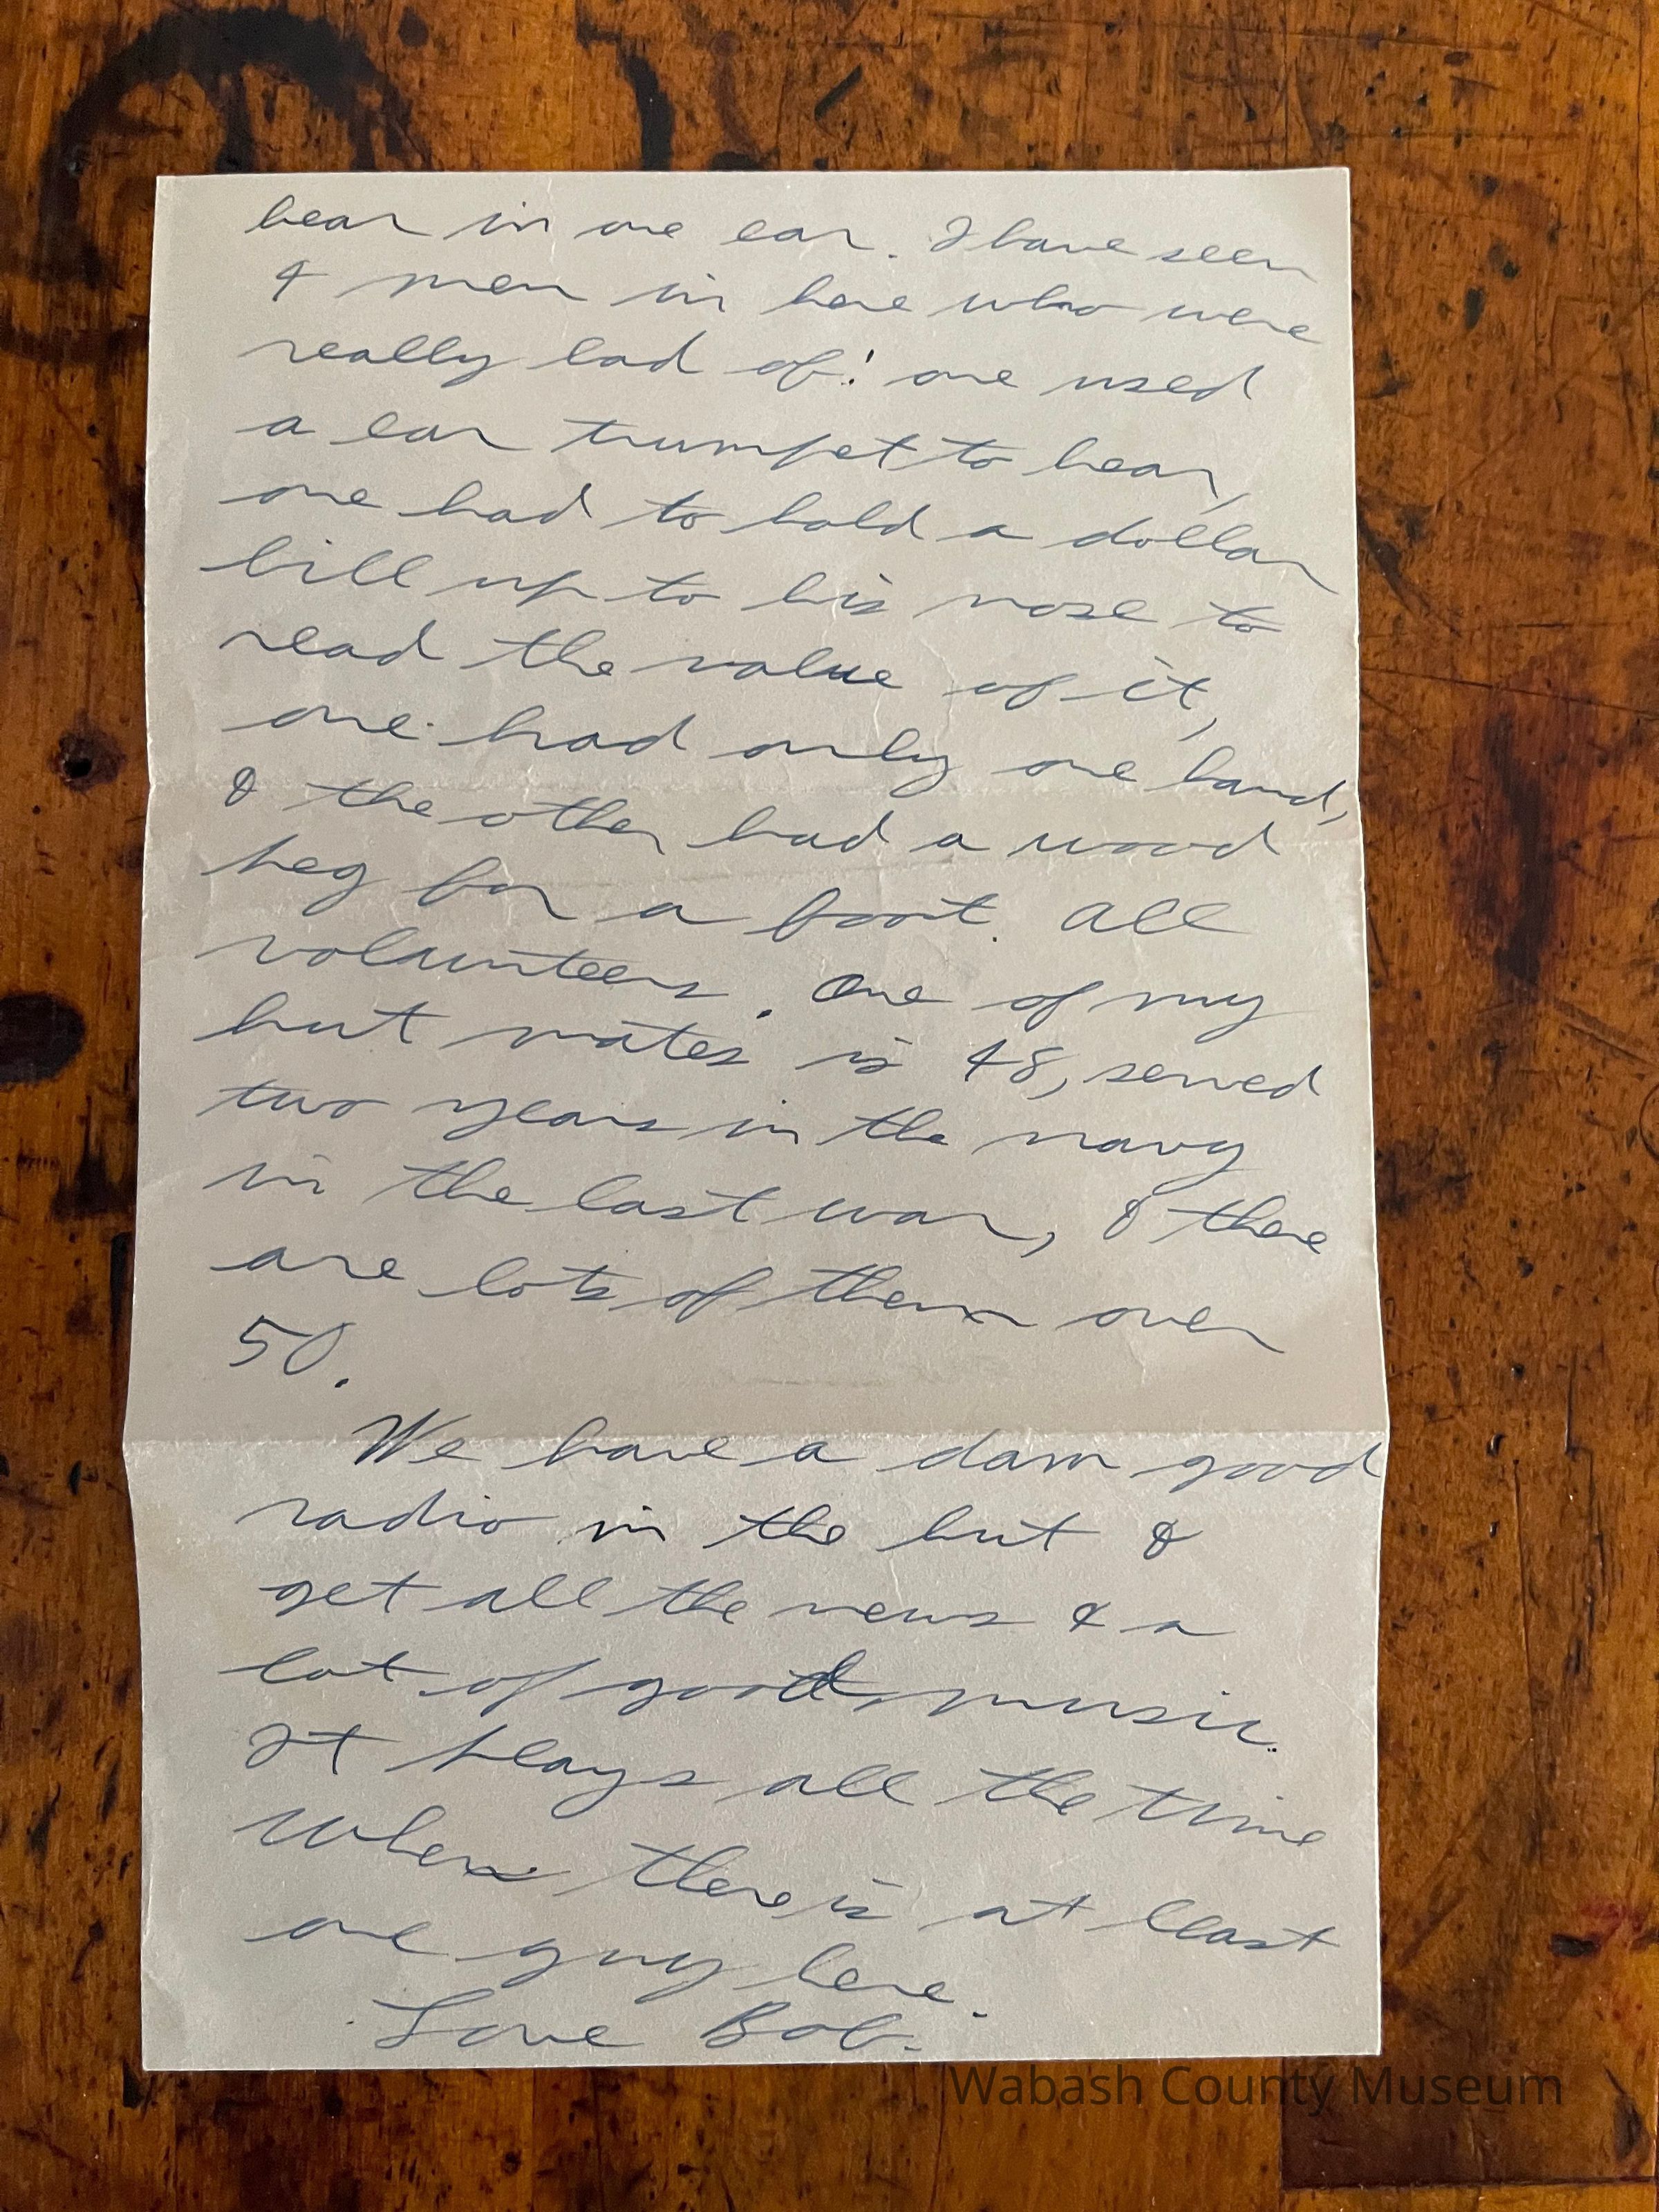 hear in one ear. I have seen
4 men in here who were
really bad of: one used
a ear trumpet to hear,
one had to hold a dollar
bill up to his nose to
read the value of it,
one had only one hand,
& the other had a wood
peg for a foot. All
volunteers. One of my
hut mates is 48, served
two years in the navy
in the last war, & there
are lots of them over
50.
We have a darn good
radio in the hut &
get all the news & a
lot of good music.
It plays all the time
when there is at least
one guy here.
Love Bob.
Wabash County Museum